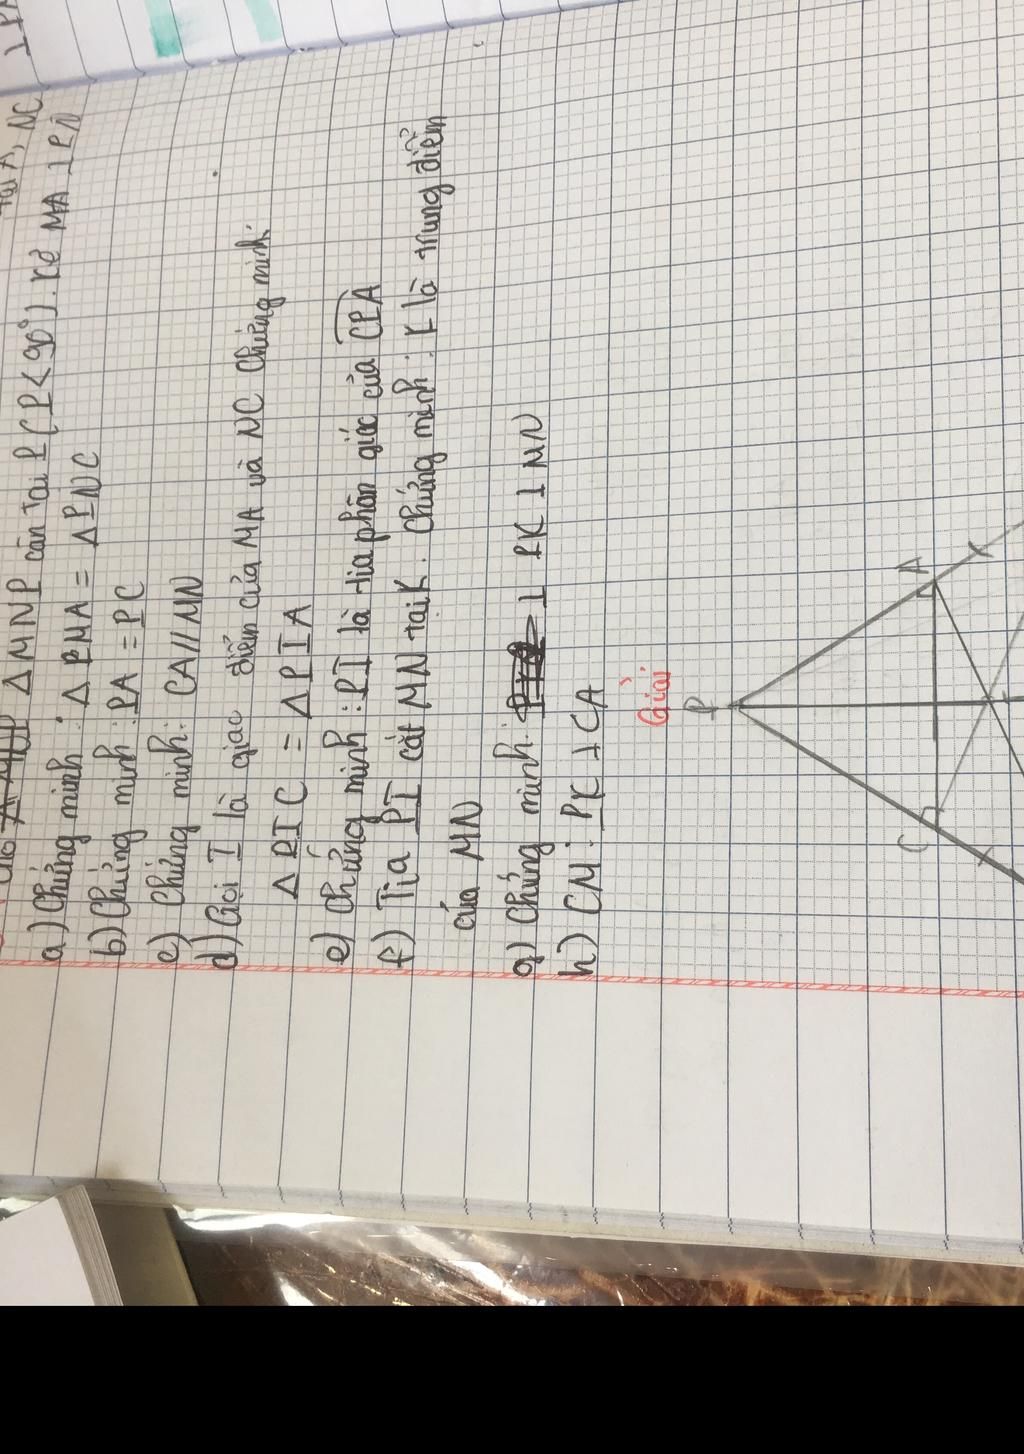 ΔMNP cân tại P (P < 90°). Kẻ MA ⊥ PN
tại A, NC
a) Chứng minh: ΔPMA = ΔPNC
b) Chứng minh: PA = PC
c) Chứng minh: CA // MN
d) Gọi I là giao điểm của MA và NC Chứng minh:
ΔPIC = ΔPIA
e) Chứng minh: PI là tia phân giác của CPA
f) Tia PI cắt MN tại K. Chứng minh: K là trung điểm
của MN
g) Chứng minh: PK ⊥ MN
h) CM: PK ⊥ CA
Giải
P
C
A